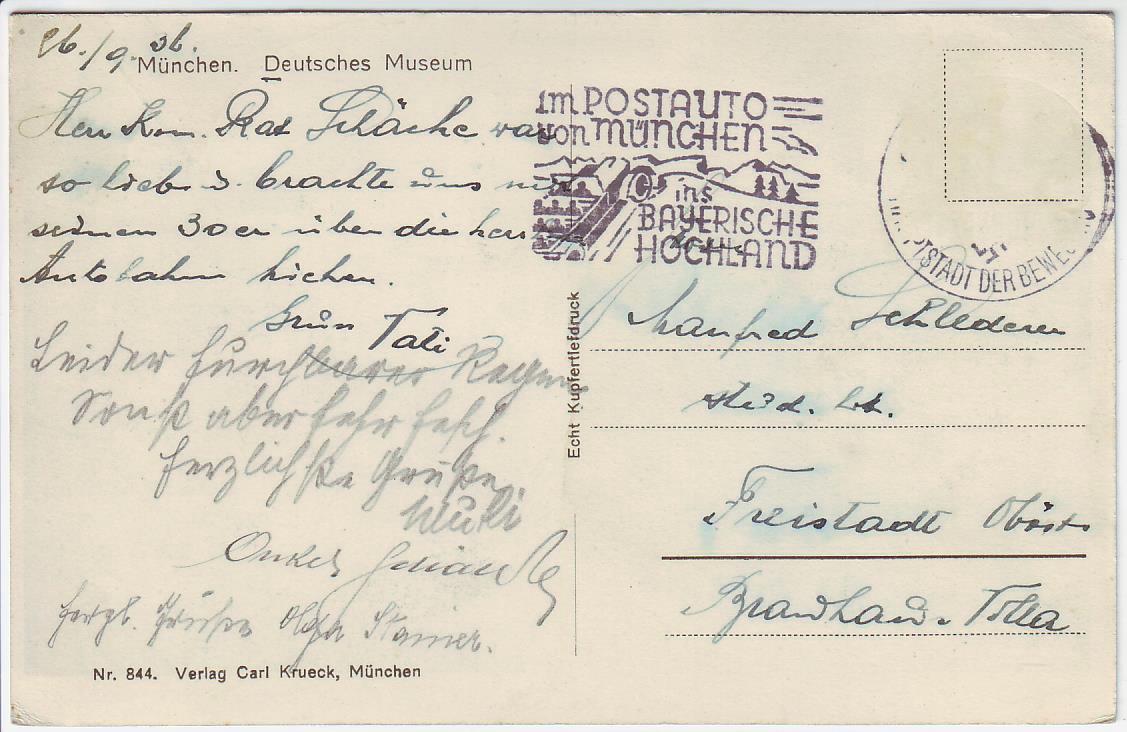 26./9. 36.
München. Deutsches Museum
Herr Kom. Rat Schäche war
so lieb u. brachte uns mit
seinen 30er über die
Autobahn hieher.
Tati
Leider furchtbarer Regen
Sonst aber sehr fesch.
Herzlichste Grüße
Mutti
Onkel
Herzl. Grüße Olga Stainer.
Nr. 844. Verlag Carl Krueck, München
Echt Kupfertiefdruck
im POSTAUTO
von MÜNCHEN
ins
BAYERISCHE
HOCHLAND
PTSTADT DER BEWE
Manfred Schlederer
stud.
Freistadt Oböst.
Brauhaus-Villa